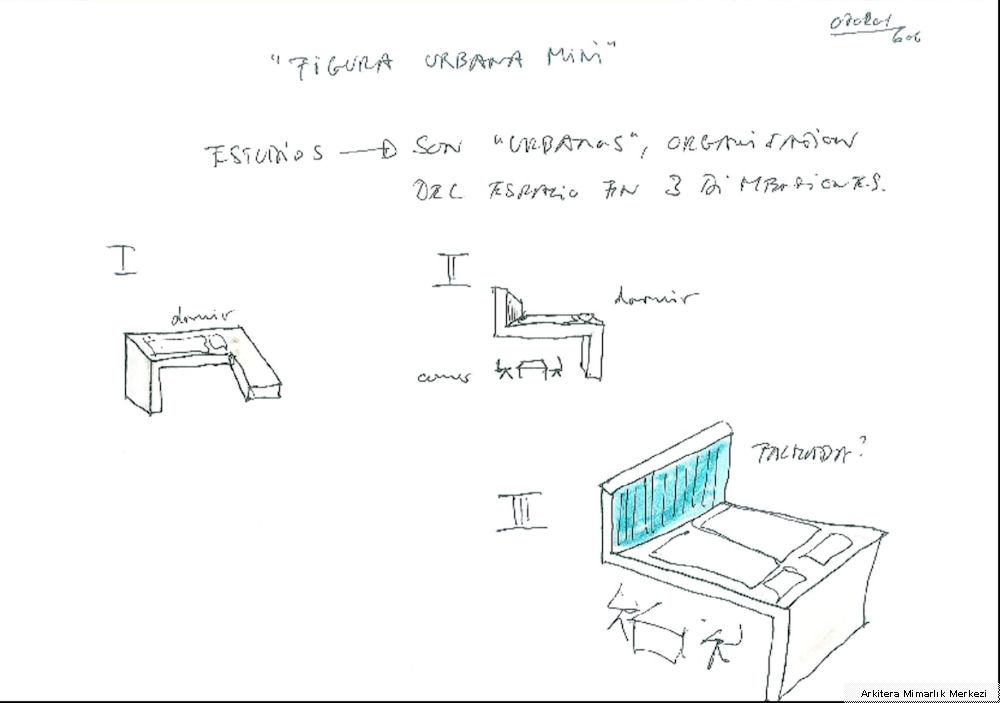 "FIGURA URBANA MINI"
ESTUDIOS → SON "URBANOS", ORGANIZACION
DEL ESPACIO EN 3 DIMENSIONES.
I
dormir
II
dormir
comer
III
FACHADA?
Arkitera Mimarlık Merkezi